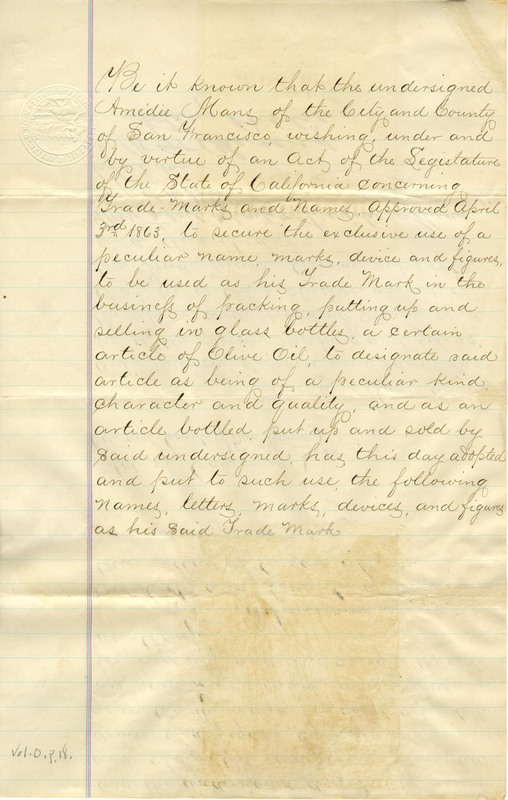 Be it known that the undersigned
Amédée Mans, of the City and County
of San Francisco, wishing, under and
by virtue of an Act of the Legislature
of the State of California concerning
Trade-Marks and Names, approved April
3rd 1863, to secure the exclusive use of a
peculiar name, marks, device and figures,
to be used as his Trade Mark in the
business of packing, putting up and
selling in glass bottles, a certain
article of Olive Oil, to designate said
article as being of a peculiar kind,
character and quality, and as an
article bottled, put up and sold by
said undersigned, has this day adopted
and put to such use, the following
names, letters, marks, devices, and figures
as his said Trade Mark
Vol. O. p. 18.